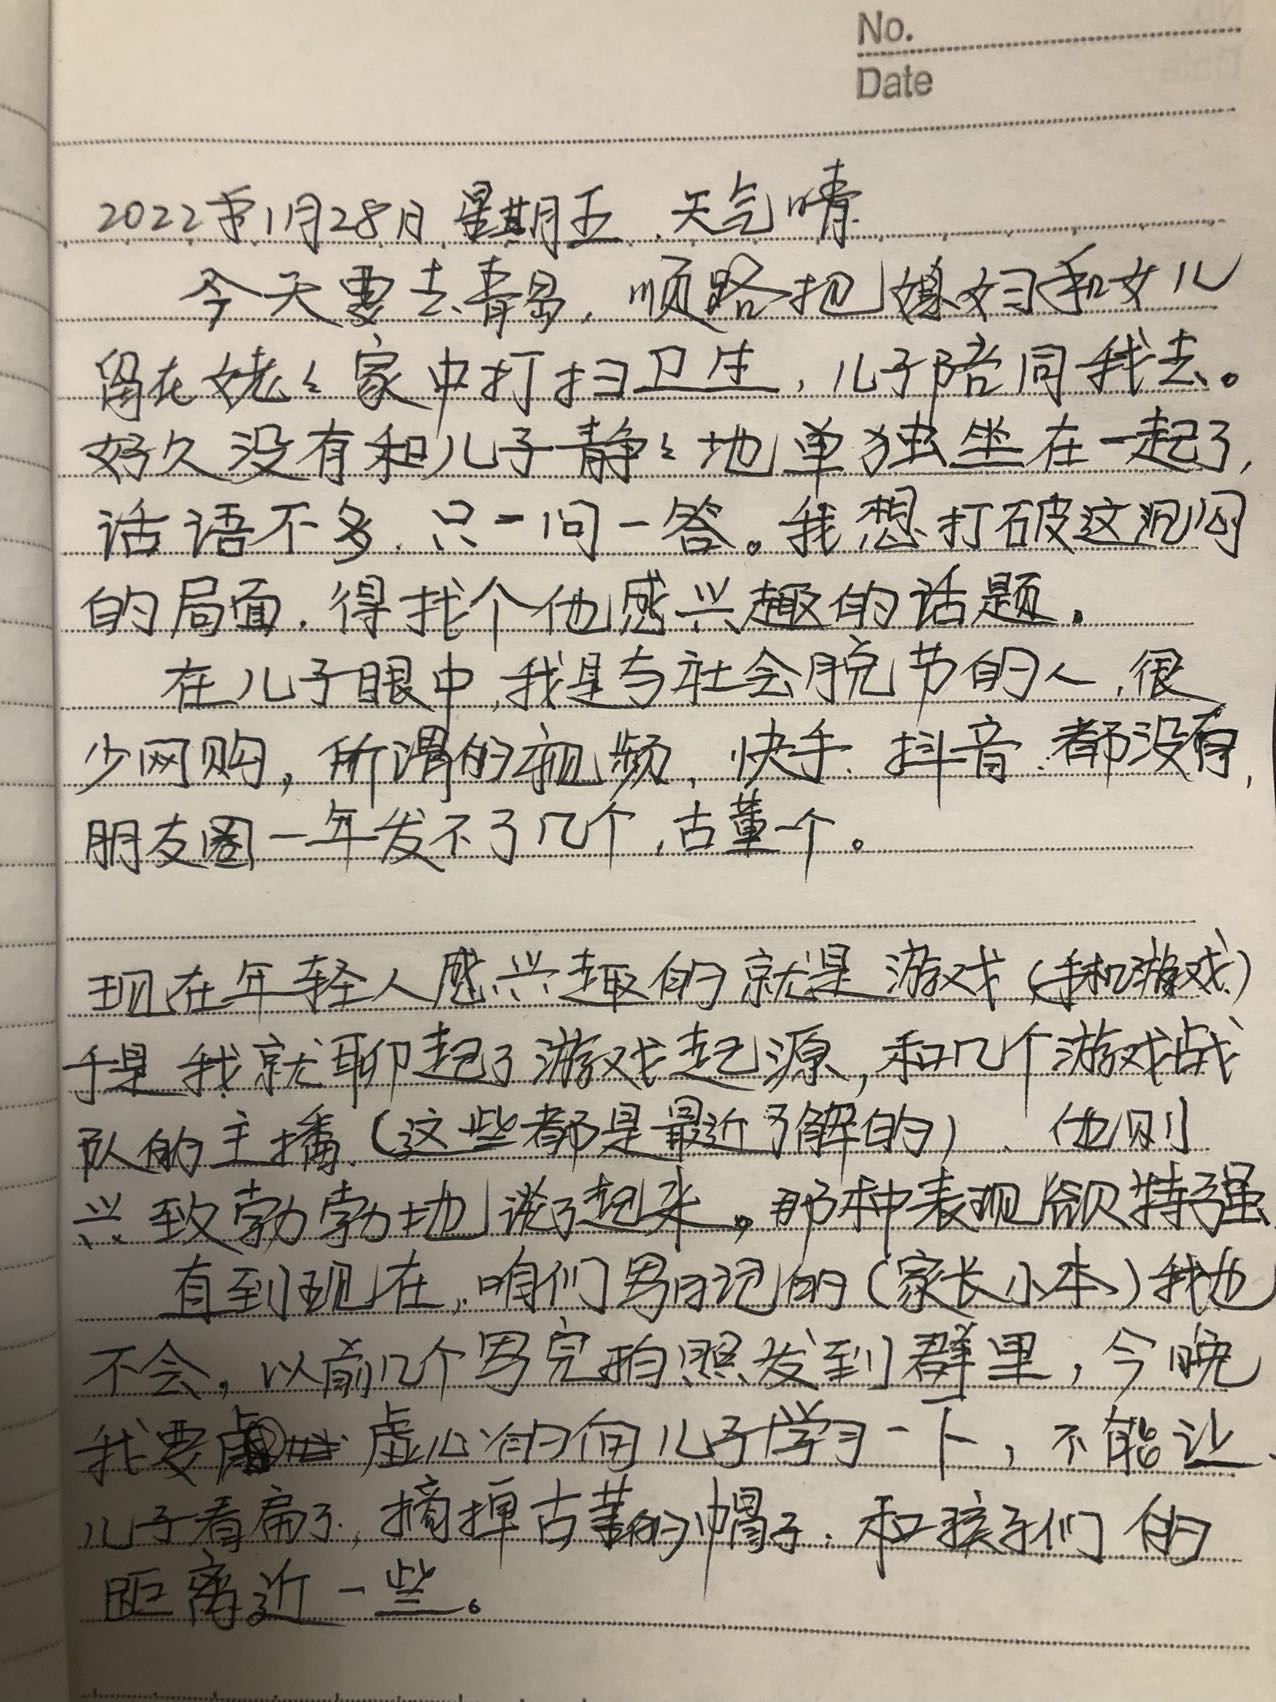 No.
Date
2022年1月28日 星期五 天气晴
今天要去青岛，顺路把媳妇和女儿
留在姥々家中打扫卫生，儿子陪同我去。
好久没有和儿子静々地单独坐在一起了，
话语不多，只一问一答。我想打破这沉闷
的局面，得找个他感兴趣的话题。
在儿子眼中，我是与社会脱节的人，很
少网购，所谓的视频、快手、抖音、都没有，
朋友圈一年发不了几个，古董一个。
现在年轻人感兴趣的就是游戏（手机游戏）
于是我就聊起了游戏起源，和几个游戏战
队的主播（这些都是最近了解的）、他则
兴致勃勃地谈了起来。那种表现欲特强
直到现在，咱们写日记的（家长小本）我也
不会，以前几个写完拍照发到群里，今晚
我要虚心的向儿子学习一下，不能让
儿子看扁了，摘掉古董的帽子，和孩子们的
距离近一些。